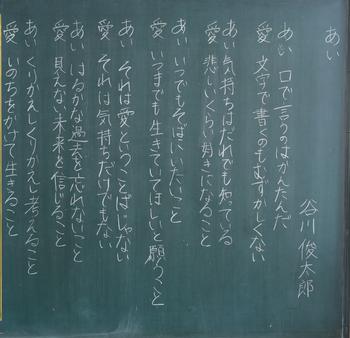 あい
谷川俊太郎
あい 口で言うのはかんたんだ
愛 文字で書くのもむずかしくない
あい 気持ちはだれでも知っている
愛 悲しいくらい好きになること
あい いつでもそばにいたいこと
愛 いつまでも生きていてほしいと願うこと
あい それは愛ということばじゃない
愛 それは気持ちだけでもない
あい はるかな過去を忘れないこと
愛 見えない未来を信じること
あい くりかえしくりかえし考えること
愛 いのちをかけて生きること